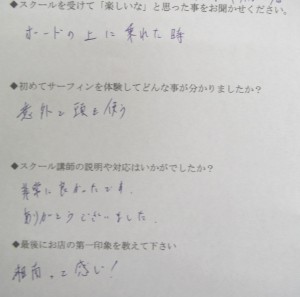 ◆スクールを受けて「楽しいな」と思った事をお聞かせください。
ボードの上に乗れた時
◆初めてサーフィンを体験してどんな事が分かりましたか？
意外と頭も使う
◆スクール講師の説明や対応はいかがでしたか？
非常に良かったです。
ありがとうございました。
◆最後にお店の第一印象を教えて下さい
湘南っこ感じ！